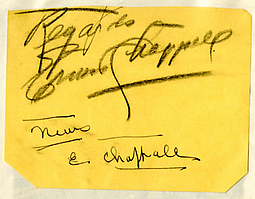 Regards
Ernest Chappell
News
E Chappell